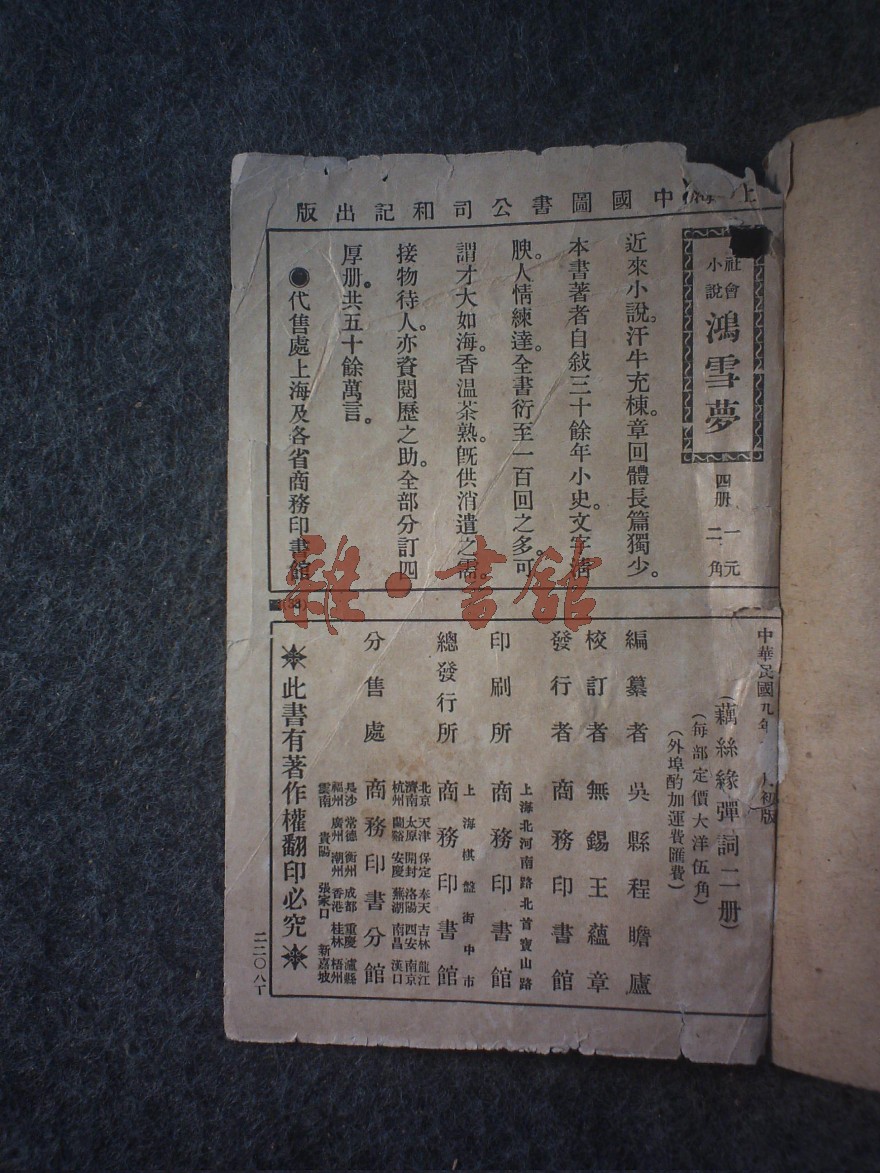 上海中國圖書公司和記出版
社會小說 鴻雪夢 四册 一元二角
近來小說。汗牛充棟。章回體長篇獨少。
本書著者自敍三十餘年小史。文字清
腴。人情練達。全書衍至一百回之多。可
謂才大如海。香温茶熟。旣供消遣之需。
接物待人。亦資閱歷之助。全部分訂四
厚册。共五十餘萬言。
●代售處上海及各省商務印書館
中華民國九年 月初版
(藕絲緣彈詞二册)
(每部定價大洋伍角)
(外埠酌加運費匯費)
編纂者 吳縣程瞻廬
校訂者 無錫王蘊章
發行者 商務印書館
上海北河南路北首寶山路
印刷所 商務印書館
上海棋盤街中市
總發行所 商務印書館
北京 天津 保定 奉天 吉林 龍江
濟南 太原 開封 洛陽 西安 南京
杭州 蘭谿 安慶 蕪湖 南昌 漢口
分售處 商務印書分館
長沙 常德 衡州 成都 重慶 瀘縣
福州 廣州 潮州 香港 桂林 梧州
雲南 貴陽 張家口 新嘉坡
此書有著作權翻印必究
二二〇八丁
雜·書館